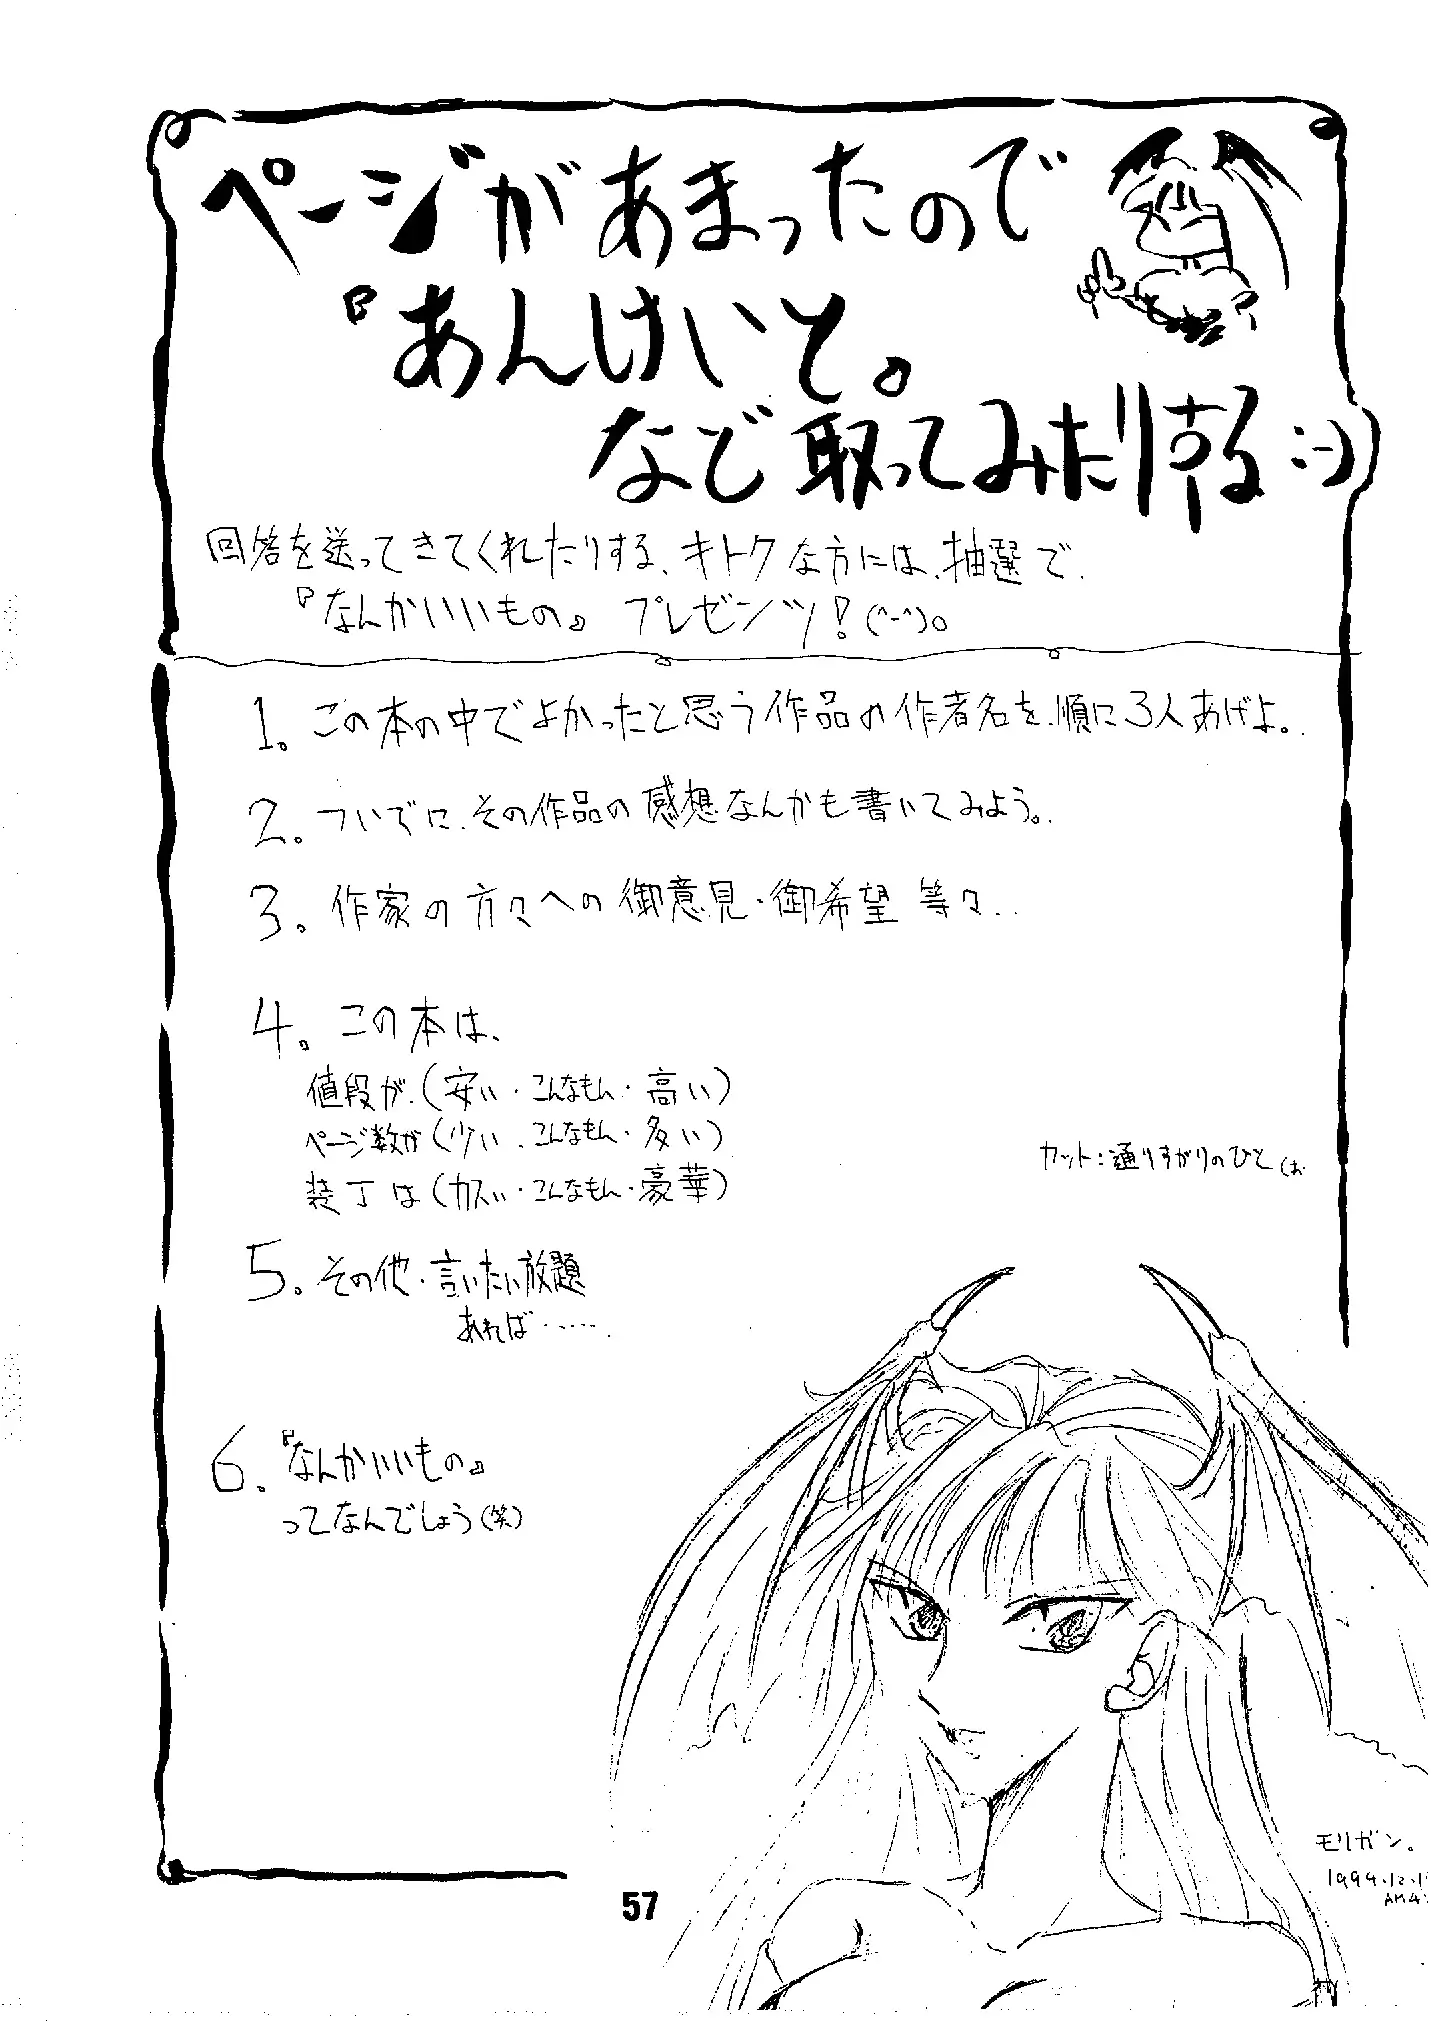 ページがあまったので
『あんけいと。
なで取ってみたりする :-)
回答を送ってきてくれたりする、キトクな方には、抽選で、
『なんかいいもの』 プレゼンツ!(^-^)。
1. この本の中でよかったと思う作品の作者名を、順に3人あげよ。
2. ついでに、その作品の感想なんかも書いてみよう。
3. 作家の方々への御意見・御希望 等々..
4. この本は、
値段が、(安い・こんなもん・高い)
ページ数が(少い・こんなもん・多い)
装丁は(カスい・こんなもん・豪華)
カット:通りすがりのひと(お
5. その他・言いたい放題
あれば・・・・・・
6. 『なんかいいもの』
ってなんでしょう(笑)
モリガン。
1994.12.1
AM4:
57